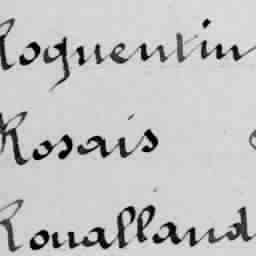 Roquentin
Rosais
Roualland